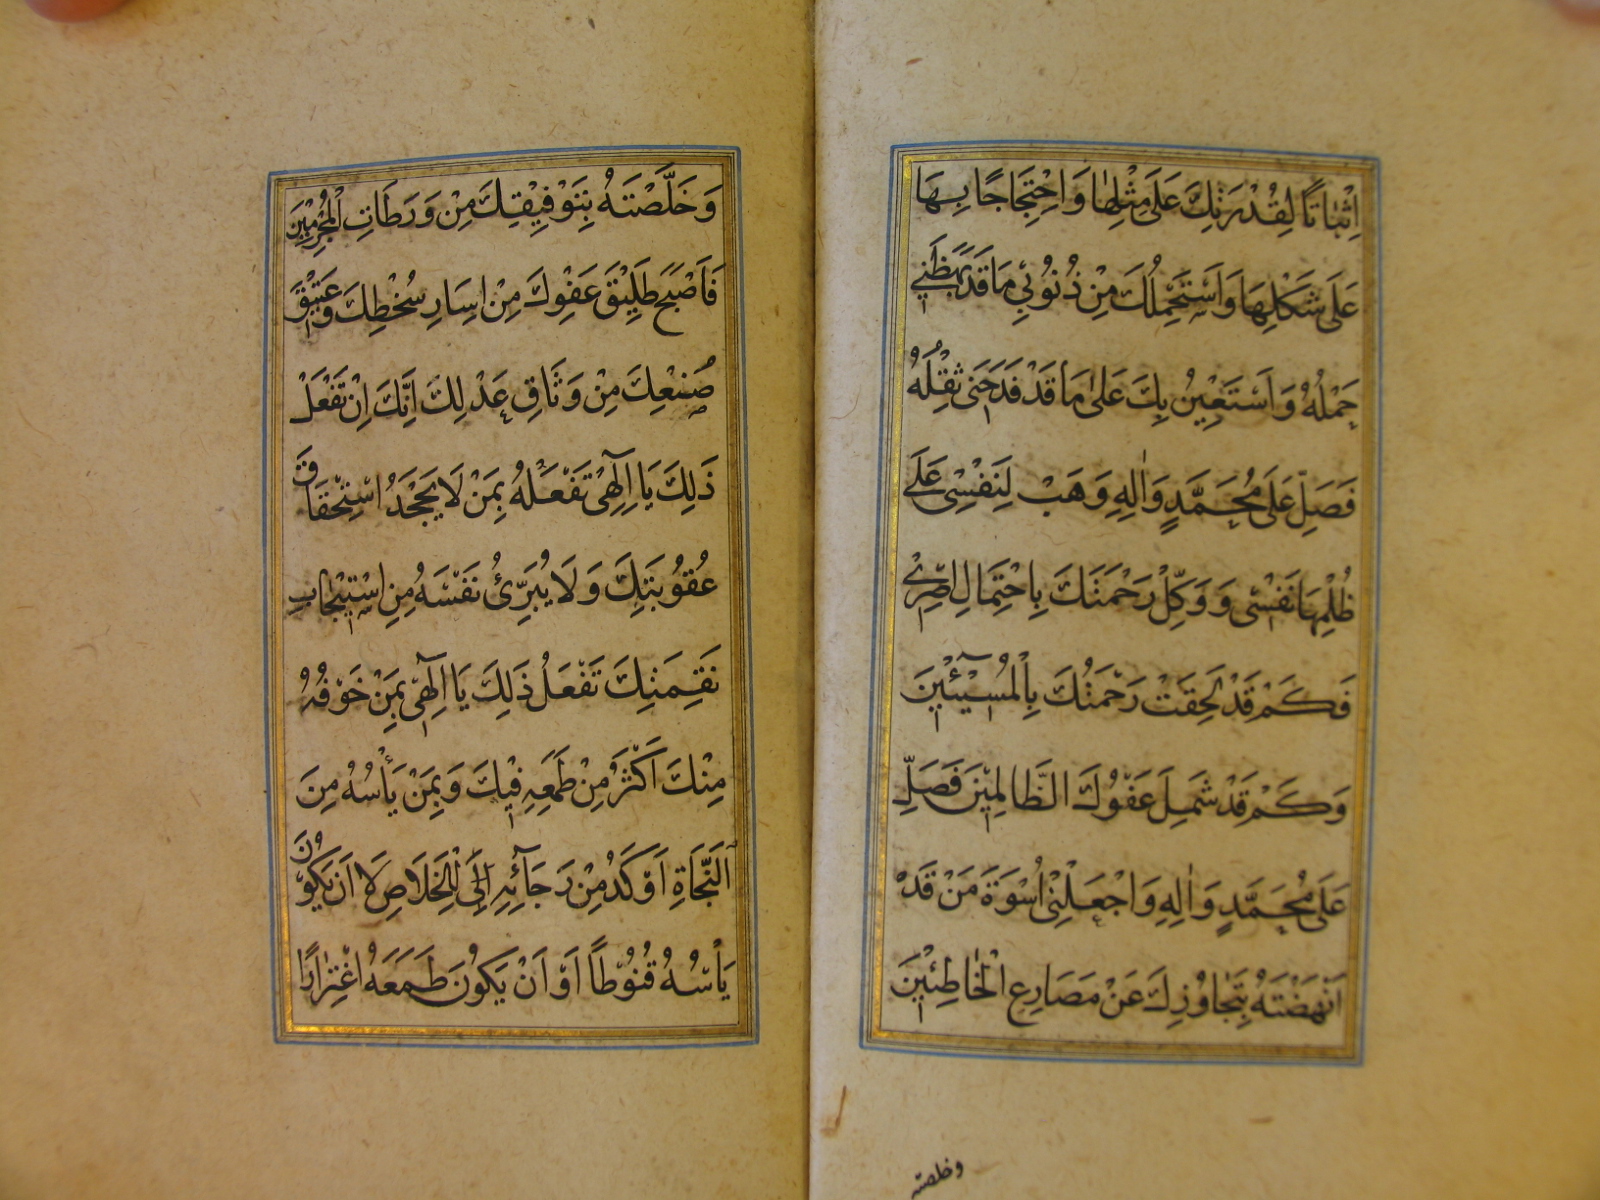 اِثْبَاتًا لِقُدْرَتِكَ عَلَى مِثْلِهَا وَاحْتِجَاجًا بِهَا
عَلَى شَكْلِهَا وَاَسْتَحْمِلُكَ مِنْ ذُنُوبِي مَا قَدْ بَهَظَنِي
حَمْلُهُ وَاَسْتَعِيْنُ بِكَ عَلَى مَا قَدْ فَدَحَنِي ثِقْلُهُ
فَصَلِّ عَلَى مُحَمَّدٍ وَاٰلِهِ وَهَبْ لِنَفْسِي عَلَى
ظُلْمِهَا نَفْسِي وَوَكِّلْ رَحْمَتَكَ بِاحْتِمَالِ اِصْرِي
فَكَمْ قَدْ لَحِقَتْ رَحْمَتُكَ بِالْمُسِيْئِيْنَ
وَكَمْ قَدْ شَمِلَ عَفْوُكَ الظَّالِمِيْنَ فَصَلِّ
عَلَى مُحَمَّدٍ وَاٰلِهِ وَاجْعَلْنِي اُسْوَةَ مَنْ قَدْ
اَنْهَضْتَهُ بِتَجَاوُزِكَ عَنْ مَصَارِعِ الْخَاطِئِيْنَ
وخلصته
وَخَلَّصْتَهُ بِتَوْفِيْقِكَ مِنْ وَرَطَاتِ الْمُجْرِمِيْنَ
فَاَصْبَحَ طَلِيْقَ عَفْوِكَ مِنْ اِسَارِ سُخْطِكَ وَعَتِيْقَ
صُنْعِكَ مِنْ وَثَاقِ عَدْلِكَ اِنَّكَ اِنْ تَفْعَلْ
ذَلِكَ يَا اِلٰهِي تَفْعَلْهُ بِمَنْ لَا يَجْحَدُ اسْتِحْقَاقَ
عُقُوْبَتِكَ وَلَا يُبَرِّئُ نَفْسَهُ مِنِ اسْتِيْجَابِ
نَقِمَتِكَ تَفْعَلُ ذَلِكَ يَا اِلٰهِي بِمَنْ خَوْفُهُ
مِنْكَ اَكْثَرُ مِنْ طَمَعِهِ فِيْكَ وَبِمَنْ يَأْسُهُ مِنَ
النَّجَاةِ اَوْكَدُ مِنْ رَجَآئِهِ لِلْخَلَاصِ لَا اَنْ يَكُوْنَ
يَأْسُهُ قُنُوْطًا اَوْ اَنْ يَكُوْنَ طَمَعُهُ اغْتِرَارًا